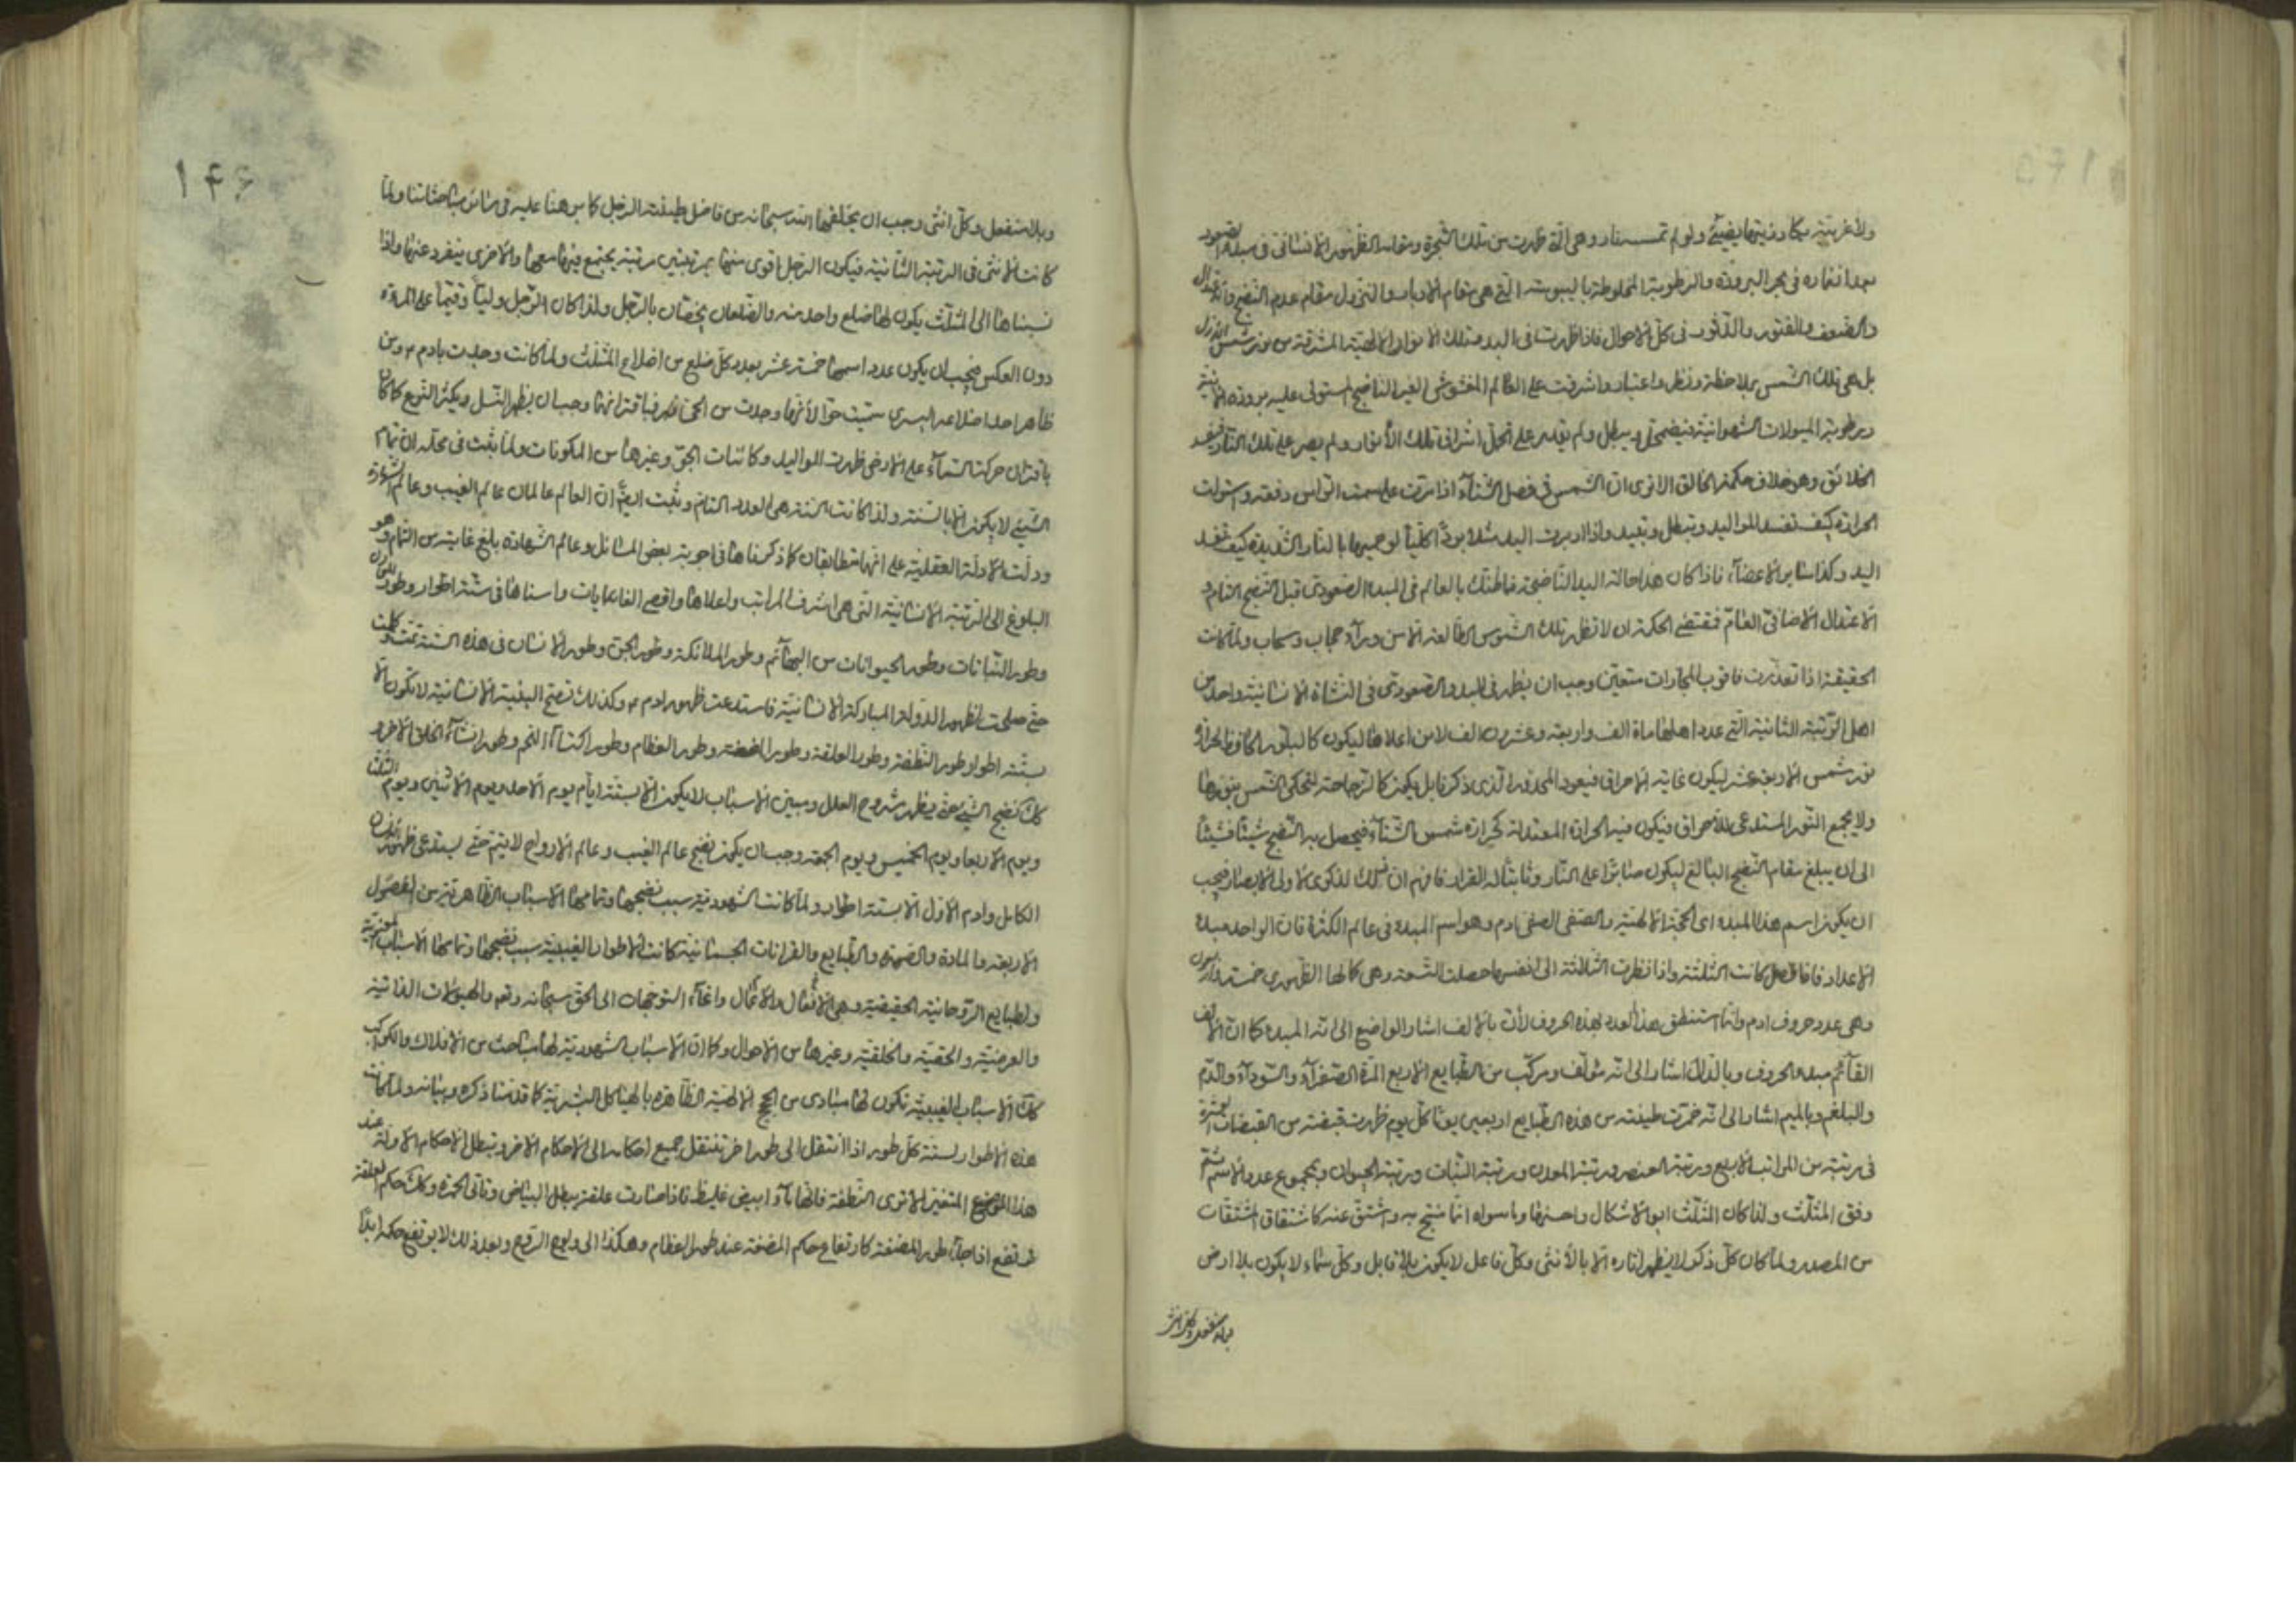 ولا غربية يكاد زيتها يضيئ ولو لم تمسسه نار وهي التي ظهرت من تلك الشجرة ومقام الظهور الانساني في مبدء الصعود
في بحر البرودة والرطوبة المخلوطة باليبوسة التي هي مقام الادبار والنزول مقام عدم النضج والاعتدال
والضعف والفتور في كل الاحوال فاذا ظهرت في البدء تلك الانوار الالهية المشرقة من نور شمس الازل
بل هي تلك الشمس بملاحظة ونظر واعتبار واشرقت على العالم الغير الناضج المستولى عليه برودة
ورطوبة الميولات الشهوانية فيضمحل ويبطل ولم يقدر على تحمل اشراق تلك الأنوار ولم يصبر على تلك النار فيفسد
الخلائق وهو خلاف حكمة الخالق الا ترى ان الشمس في فصل الشتاء اذا مرت على سمت الراس دفعة واستولت
الحرارة كيف تفسد المواليد وتبطل وتبيد واذا بردت اليد مثلا بردا كليا لو حميها بالنار الشديدة كيف تفسد
اليد وكذا سائر الاعضاء فاذا كان هذا حالة اليد الناضجة فما ظنك بالعالم في المبدء الصعودي قبل النضج التام و
الاعتدال الاضافي العام فتقتضي الحكمة ان لا تظهر تلك الشموس الطالعة الا من وراء حجاب وسحاب ولما كانت
الحقيقة اذا تعذرت فاقرب المجازات متعين وجب ان يظهر في المبدء الصعودي في النشاة الانسانية واحد من
اهل الرتبة الثانية التي عدد اهلها مأة الف واربعة وعشرون الف لا من اعلاها ليكون كالبلور الحافظ لحرارة
نور شمس الاربعة عشر ليكون غاية الاحراق فيعود المحذور الذي ذكر قابل يكون كالزجاجة لتحكى الشمس بنورها
ولا يجمع النور المستدعي للاحراق فيكون فيه الحرارة المعتدلة كحرارة شمس الشتاء فيحصل به النضج شيئا فشيئا
الى ان يبلغ مقام النضج البالغ ليكون صابرا على النار وثابتا له القرار فافهم ان في ذلك لذكرى لاولي الابصار فيجب
ان يكون اسم هذا المبدء اي الحجة الالهية والصفي الصفي ادم وهو اسم المبدء في عالم الكثرة فان الواحد مبدء
الاعداد فاذا فصل كانت الثلثة واذا نظرت الثلاثة الى نفسها حصلت التسعة وهي كمالها الظهوري خمسة واربعون
وهي عدد حروف ادم وانما استنطق هذا العدد بهذه الحروف لأن بالألف اشار الواضع الى انه المبدء كما ان الالف
القائم مبدء الحروف وبالدال اشار الى انه مؤلف ومركب من الطبايع الاربع المرة الصفراء والسوداء والدم
والبلغم وبالميم اشار الى انه خمرت طينته من هذه الطبايع اربعين يوما كل يوم ظهرت قبضة من القبضات العشرة
في مرتبة من المراتب الاربع ورتبة العنصر ورتبة المعدن ورتبة النبات ورتبة الحيوان ومجموع عدد الاسم
وفق المثلث ولذا كان المثلث ابو الاشكال واحسنها وما سواه انما نتج به واشتق عنه كاشتقاق المشتقات
من المصدر ولما كان كل ذكر لا يظهر اثاره الا بالأنثى وكل فاعل لا يكون بلا قابل وكل سماء لا يكون بلا ارض
وبلا منفعل وكل انثى
۱۴۶
وبلا منفعل وكل انثى وجب ان يخلقها الله سبحانه من فاضل طينة الرجل كما برهنا عليه في سائر مباحثاتنا ولما
كانت الانثى في الرتبة الثانية فيكون الرجل اقوى منها بمرتبتين مرتبة يجتمع فيها معها والاخرى ينفرد عنها واذا
نسبناها الى المثلث يكون لها ضلع واحد منه والضلعان يختصان بالرجل ولذا كان الرجل وليا وقيما على المرءة
دون العكس فيجب ان يكون عدد اسمها خمسة عشر بعدد كل ضلع من اضلاع المثلث ولما كانت وجدت بادم ۴ ومن
ظاهر احد اضلاعه اليسرى سميت حوا لأنها وجدت من الحي فباقترانهما وجب ان يظهر النسل ويكثر النوع كما كان
باقتران حركة السماء على الارض ظهرت المواليد وكائنات الجو وغيرها من المكونات ولما ثبت في محله ان تمام
الشيئ لا يكون الا بالستة ولذا كانت الستة هي العدد التام وثبت ايضا ان العالم عالمان عالم الغيب وعالم الشهادة
ودلت الادلة العقلية على انهما متطابقان كما ذكرناها في اجوبة بعض المسائل وعالم الشهادة بلغ غايته من التمام وهو
البلوغ الى الرتبة الانسانية التي هي اشرف المراتب واعلاها واقصى الغايات واسناها في ستة اطوار وطور
وطور النباتات وطور الحيوانات من البهائم وطور الملائكة وطور الجن وطور الانسان في هذه الستة تمت وكملت
حتى صلحت لظهور الدولة المباركة الانسانية فاستدعت ظهور ادم ۴ وكذلك نضج البنية الانسانية لا تكون الا
بستة اطوار طور النطفة وطور العلقة وطور المضغة وطور العظام وطور اكتساء اللحم وطور انشاء الخلق الاخر و
كك نضج الشيئ حتى يظهر مشروح العلل ومبين الاسباب لا يكون الا بستة ايام يوم الاحد ويوم الاثنين ويوم الثلثا
ويوم الاربعا ويوم الخميس ويوم الجمعة وجب ان يكون نضج عالم الغيب وعالم الارواح لا يتم حتى يستدعى ظهور
الكامل وادم الاول الا بستة اطوار ولما كانت الشهودية سبب نضجها وتمامها الاسباب الظاهرية من الفصول
الاربعة والمادة والصورة والطبايع والقرانات الجسمانية كانت الاطوار الغيبية سبب نضجها وتمامها الاسباب المعنوية
والطبايع الروحانية الحقيقية وهي الافعال والاعمال وانحاء التوجهات الى الحق سبحانه وتع والميولات الذاتية
والعرضية والحقية والخلقية وغيرها من الاحوال وكما ان الاسباب الشهودية لها مباحث من الافلاك والكواكب
كك الاسباب الغيبية تكون لها مبادى من الحجج الالهية الظاهرة بالهياكل البشرية كما قدمنا ذكره وبيانه ولما كانت
هذه الاطوار لستة كل طور اذا انتقل الى طور اخر تنتقل جميع احكامه الى الاحكام الاخر وتبطل الاحكام الاولة عند
هذا الموضع المتغير الا ترى النطفة فانها ماء ابيض غليظ فاذا صارت علقة يبطل البياض وتاتى الحمرة وكك حكم العلقة
ترتفع اذا جاء طور المضغة كارتفاع حكم المضغة عند طور العظام وهكذا الى ولوج الروح وبعد ذلك لا يرتفع حكمه ابدا